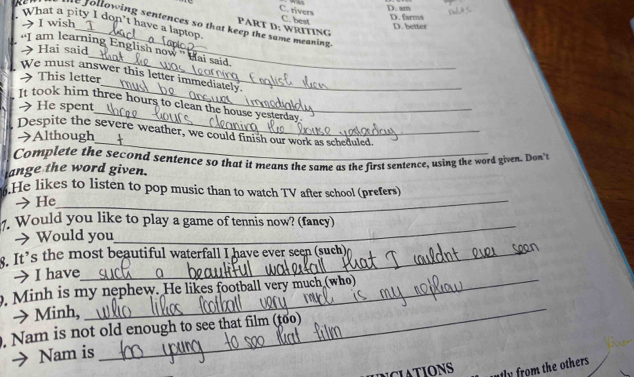 C. rivers
C. best
D. am
D. farms
D. better
following sentences so that keep the same meaning.
PART D: WRITING
What a pity I don't have a laptop.
→ I wish I had a laptop
"I am learning English now" Hai said.
→ Hai said that he was learning English then
We must answer this letter immediately.
→ This letter must be answer immediately
It took him three hours to clean the house yesterday.
→ He spent three hours cleaning the house yesterday
Despite the severe weather, we could finish our work as scheduled.
→Although
Complete the second sentence so that it means the same as the first sentence, using the word given. Don't
ange the word given.
6.He likes to listen to pop music than to watch TV after school (prefers)
→ He
7. Would you like to play a game of tennis now? (fancy)
→ Would you
8. It's the most beautiful waterfall I have ever seen (such)
→ I have such a beautiful waterfall that I couldnt ever seen
. Minh is my nephew. He likes football very much (who)
→ Minh, who likes football very much is my nephew
. Nam is not old enough to see that film (too)
→ Nam is too young to see that film
NCIATIONS
ntly from the others